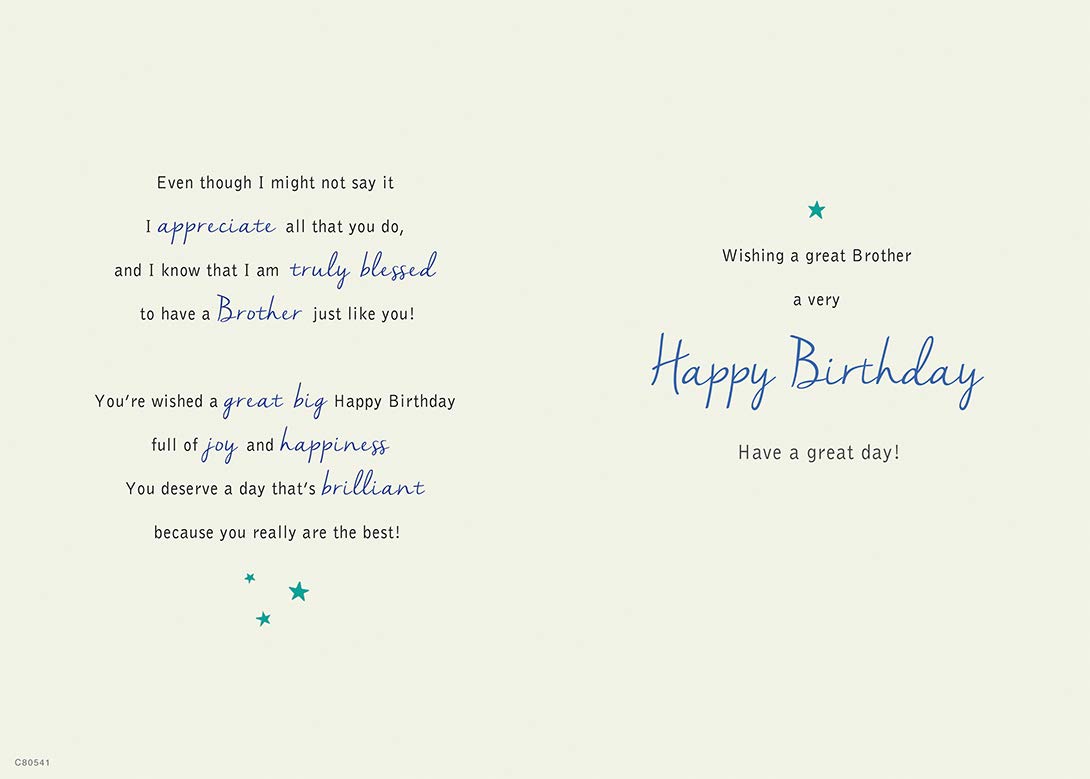 Even though I might not say it
I appreciate all that you do,
and I know that I am truly blessed
to have a Brother just like you!
You're wished a great big Happy Birthday
full of joy and happiness
You deserve a day that's brilliant
because you really are the best!
C80541
Wishing a great Brother
a very
Happy Birthday
Have a great day!